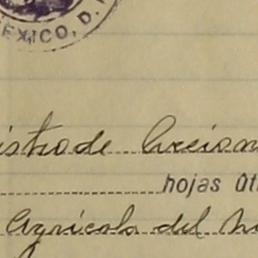 MEXICO, D.
istro de Crecion
hojas úti
Agrícola del